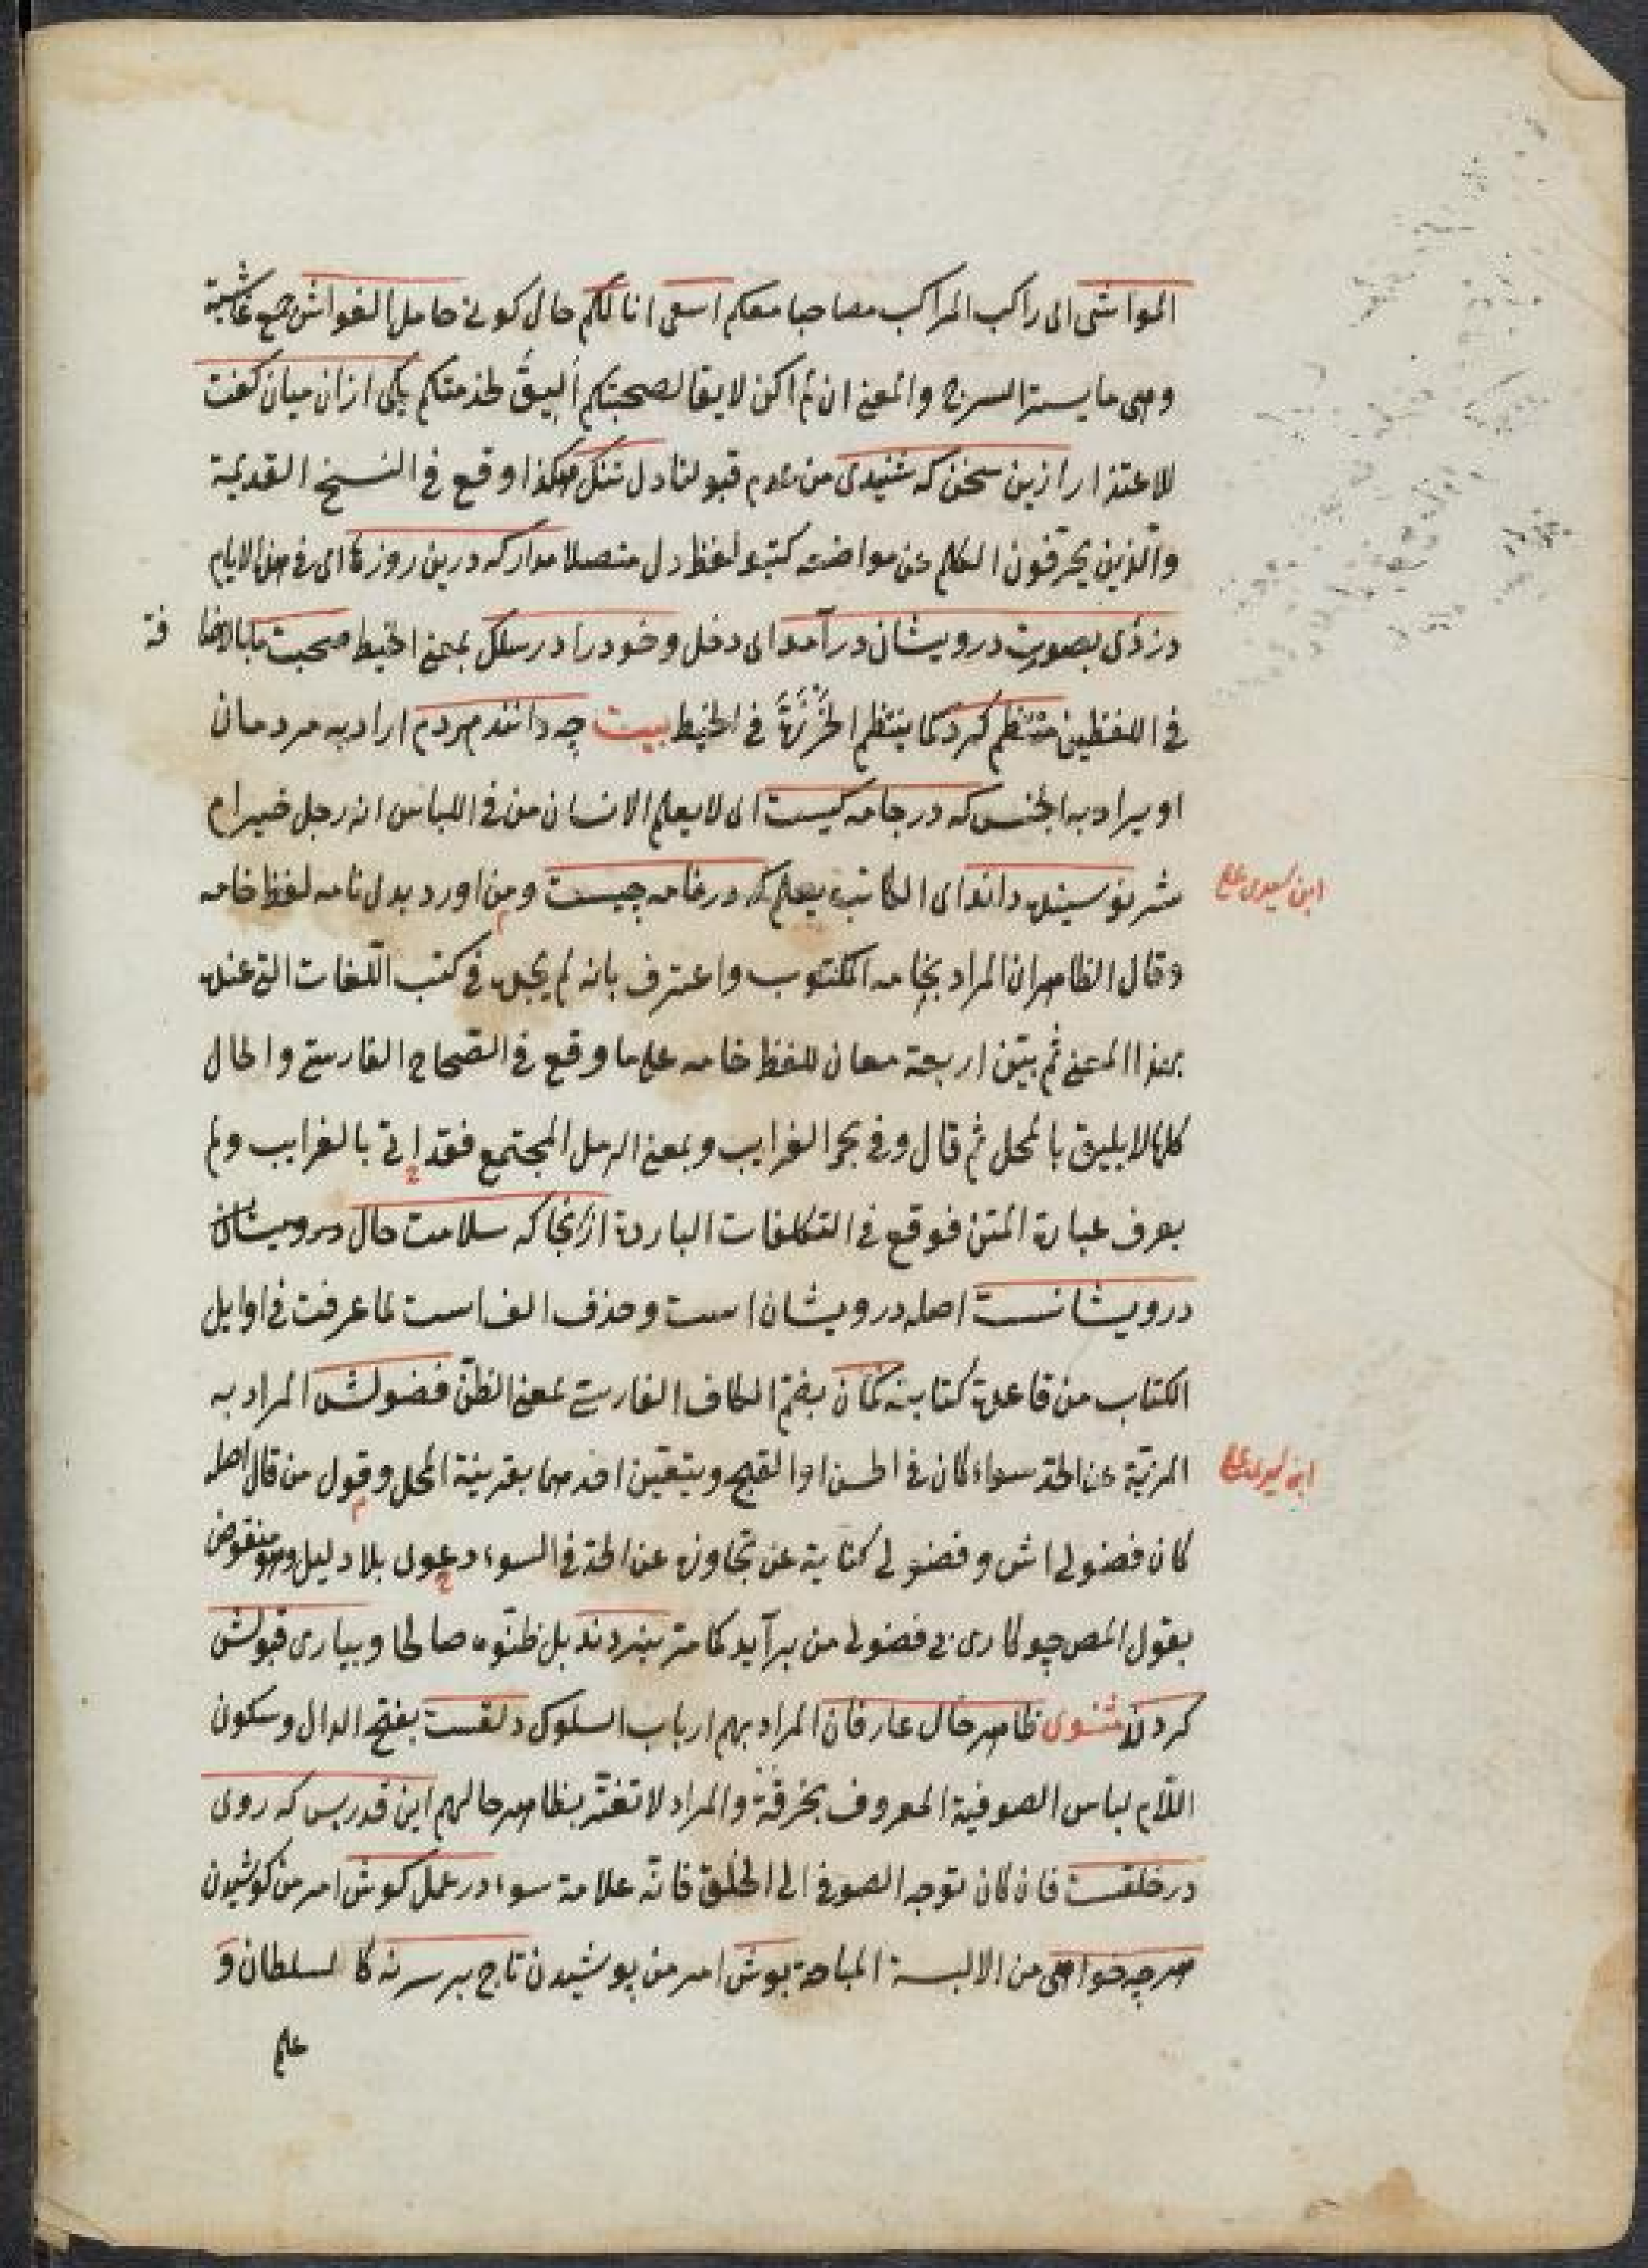 المواشی ای راکب المراکب مصاحبا معکم اسعی انا لکم حال کونی حامل الغواشی جمع غاشیة
وهی ما یستر السرج والمعنی ان لم اکن لایقا لصحبتکم ألیقُ لخدمتکم یکی ازان میان کفت
للاعتذار ازین سخن که شنیدی من عدم قبولنا دل تنک هکذا وقع فی النسخ القدیمة
والذین یحرّفون الکلم عن مواضعه کتبو لفظ دل متصلا مدار که درین روزها ای فی هذه الایام
دزدی بصورت درویشان در آمد ای دخل وخود را در سلک بمعنی الخیط صحبت ما بالاضا فة
فی اللفظین منتظم کرد کما ینتظم الخَرْزَةُ فی الخیط بیت چه دانند مردم اراد به مردمان
او یراد به الجنس که در جامه کیست ای لا یعلم الانسان من فی اللباس انه رجل خیر ام
شر نویسنده داند ای الکاتب یعلم که در نامه چیست ومن اورد بدل نامه لفظ خامه
ابن سیدی علی
وقال الظاهر ان المراد بخامه المکتوب واعترف بانه لم یجده فی کتب اللّغات التی عنده
بهذا المعنی ثم بیّن اربعة معان للفظ خامه علی ما وقع فی الصّحاح الفارسی والحال
کلها لا یلیق بالمحل ثم قال وفی بحر الغرایب وبمعنی الرمل المجتمع فقد اتی بالغرایب ولم
یعرف عبارة المتن فوقع فی التکلفات الباردة ازانجا که سلامت حال درویشان
درویشانست اصله درویشان است وحذف الف است لما عرفت فی اوایل
الکتاب من قاعدة کتابیة کمان بضم الکاف الفارسی بمعنی الظنّ فضولش المراد به
المزیّة عن الحد سواء کان فی الحسن او القبح ویتعین احدهما بقرینة المحل وقول من قال اصله
ابن سیدی علی
کان فضولی اش وفضولی کنایة عن تجاوزه عن الحد فی السوء دعوی بلا دلیل وهو منقوض
بقول المص چو کاری بی فضولی من برآید کما مر نبردند بل ظنّوه صالحا وبیاری قبولش
کردند مثنوی ظاهر حال عارفان المراد بهم ارباب السلوک دلقست بفتح الدال وسکون
اللّام لباس الصوفیة المعروف بخرقة والمراد لا تغترّ بظاهر حالهم این قدر بس که روی
در خلقست فان کان توجه الصوفی الی الخلق فانّه علامة سوء در عمل کوش امر من کوشیدن
هرچه خواهی من الالبسة المباحة بپوش امر من پوشیدن تاج بر سر نه کالسلطان و
علم